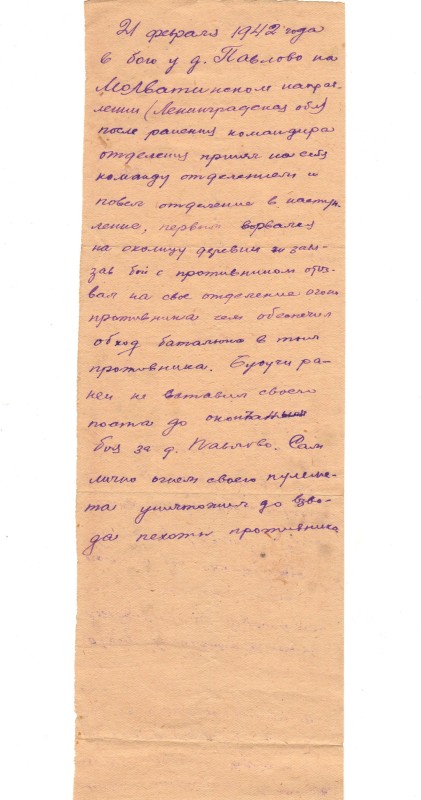 21 февраля 1942 года
в бою у д. Павлово на
Молватинском направ-
лении (Ленинградская обл)
после ранения командира
отделения принял на себя
команду отделением и
повел отделение в наступ-
ление, первым ворвался
на околицу деревни и завя-
зав бой с противником отоз-
вал на свое отделение огонь
противника чем обеспечил
обход баталиона в тыл
противника. Будучи ра-
нен не оставил своего
поста до окончания
боя за д. Павлово. Сам
лично огнем своего пулеме-
та уничтожил до взво-
да пехоты противника